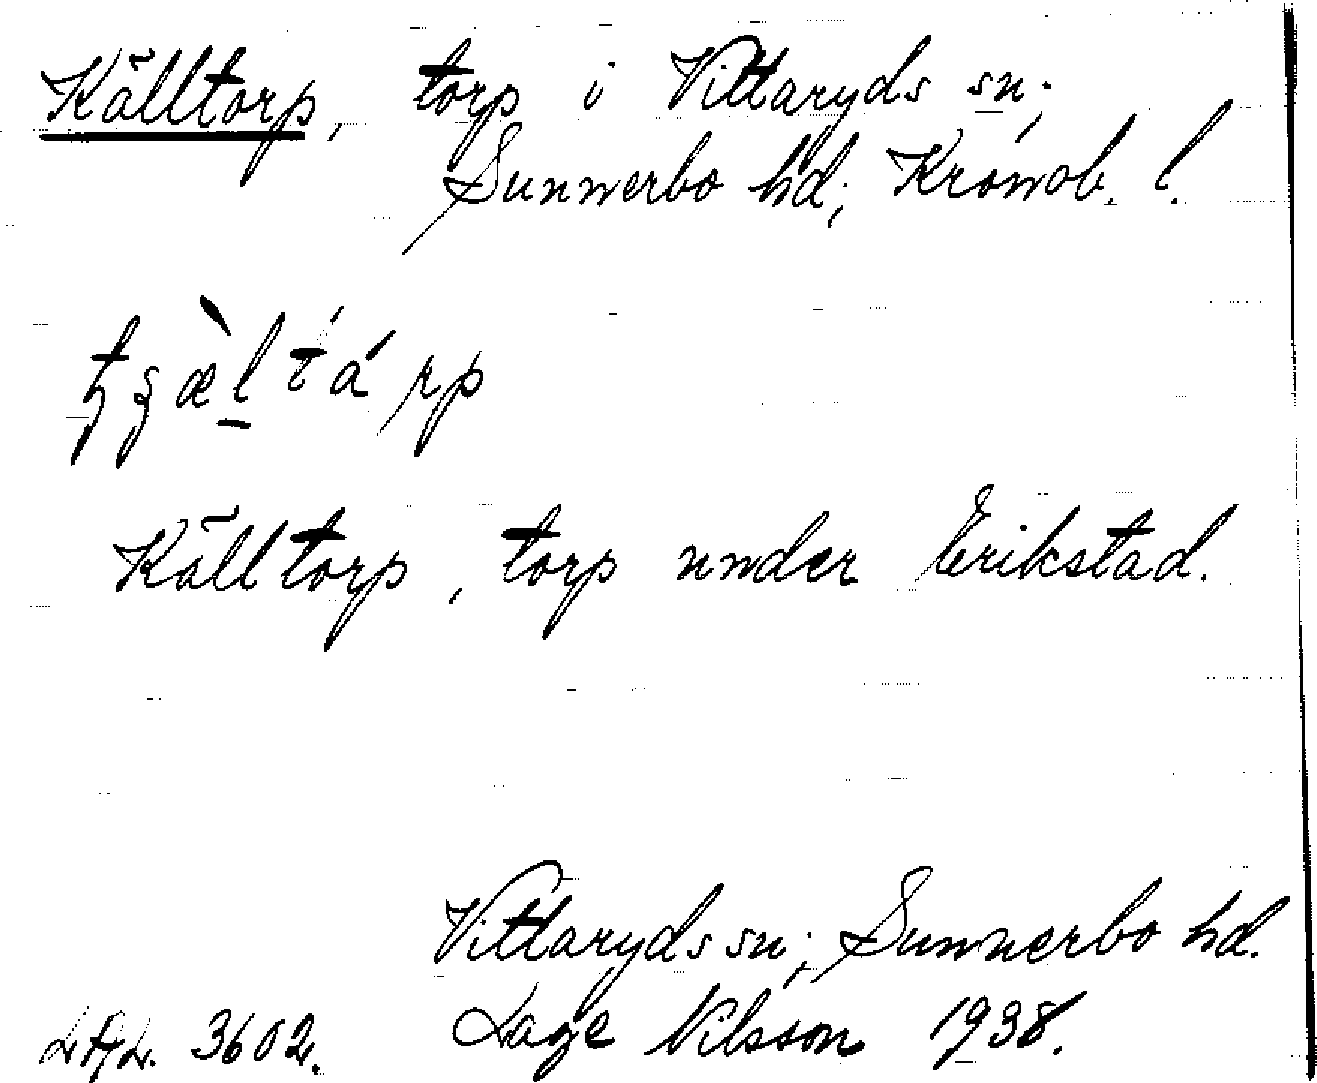 Källtorp, torp i Vittaryds sn;
Sunnerbo hd; Kronob. l.
Källtorp, torp under Erikstad.
Vittaryds sn; Sunnerbo hd.
L.A.L. 3602. Lage Nilsson 1938.